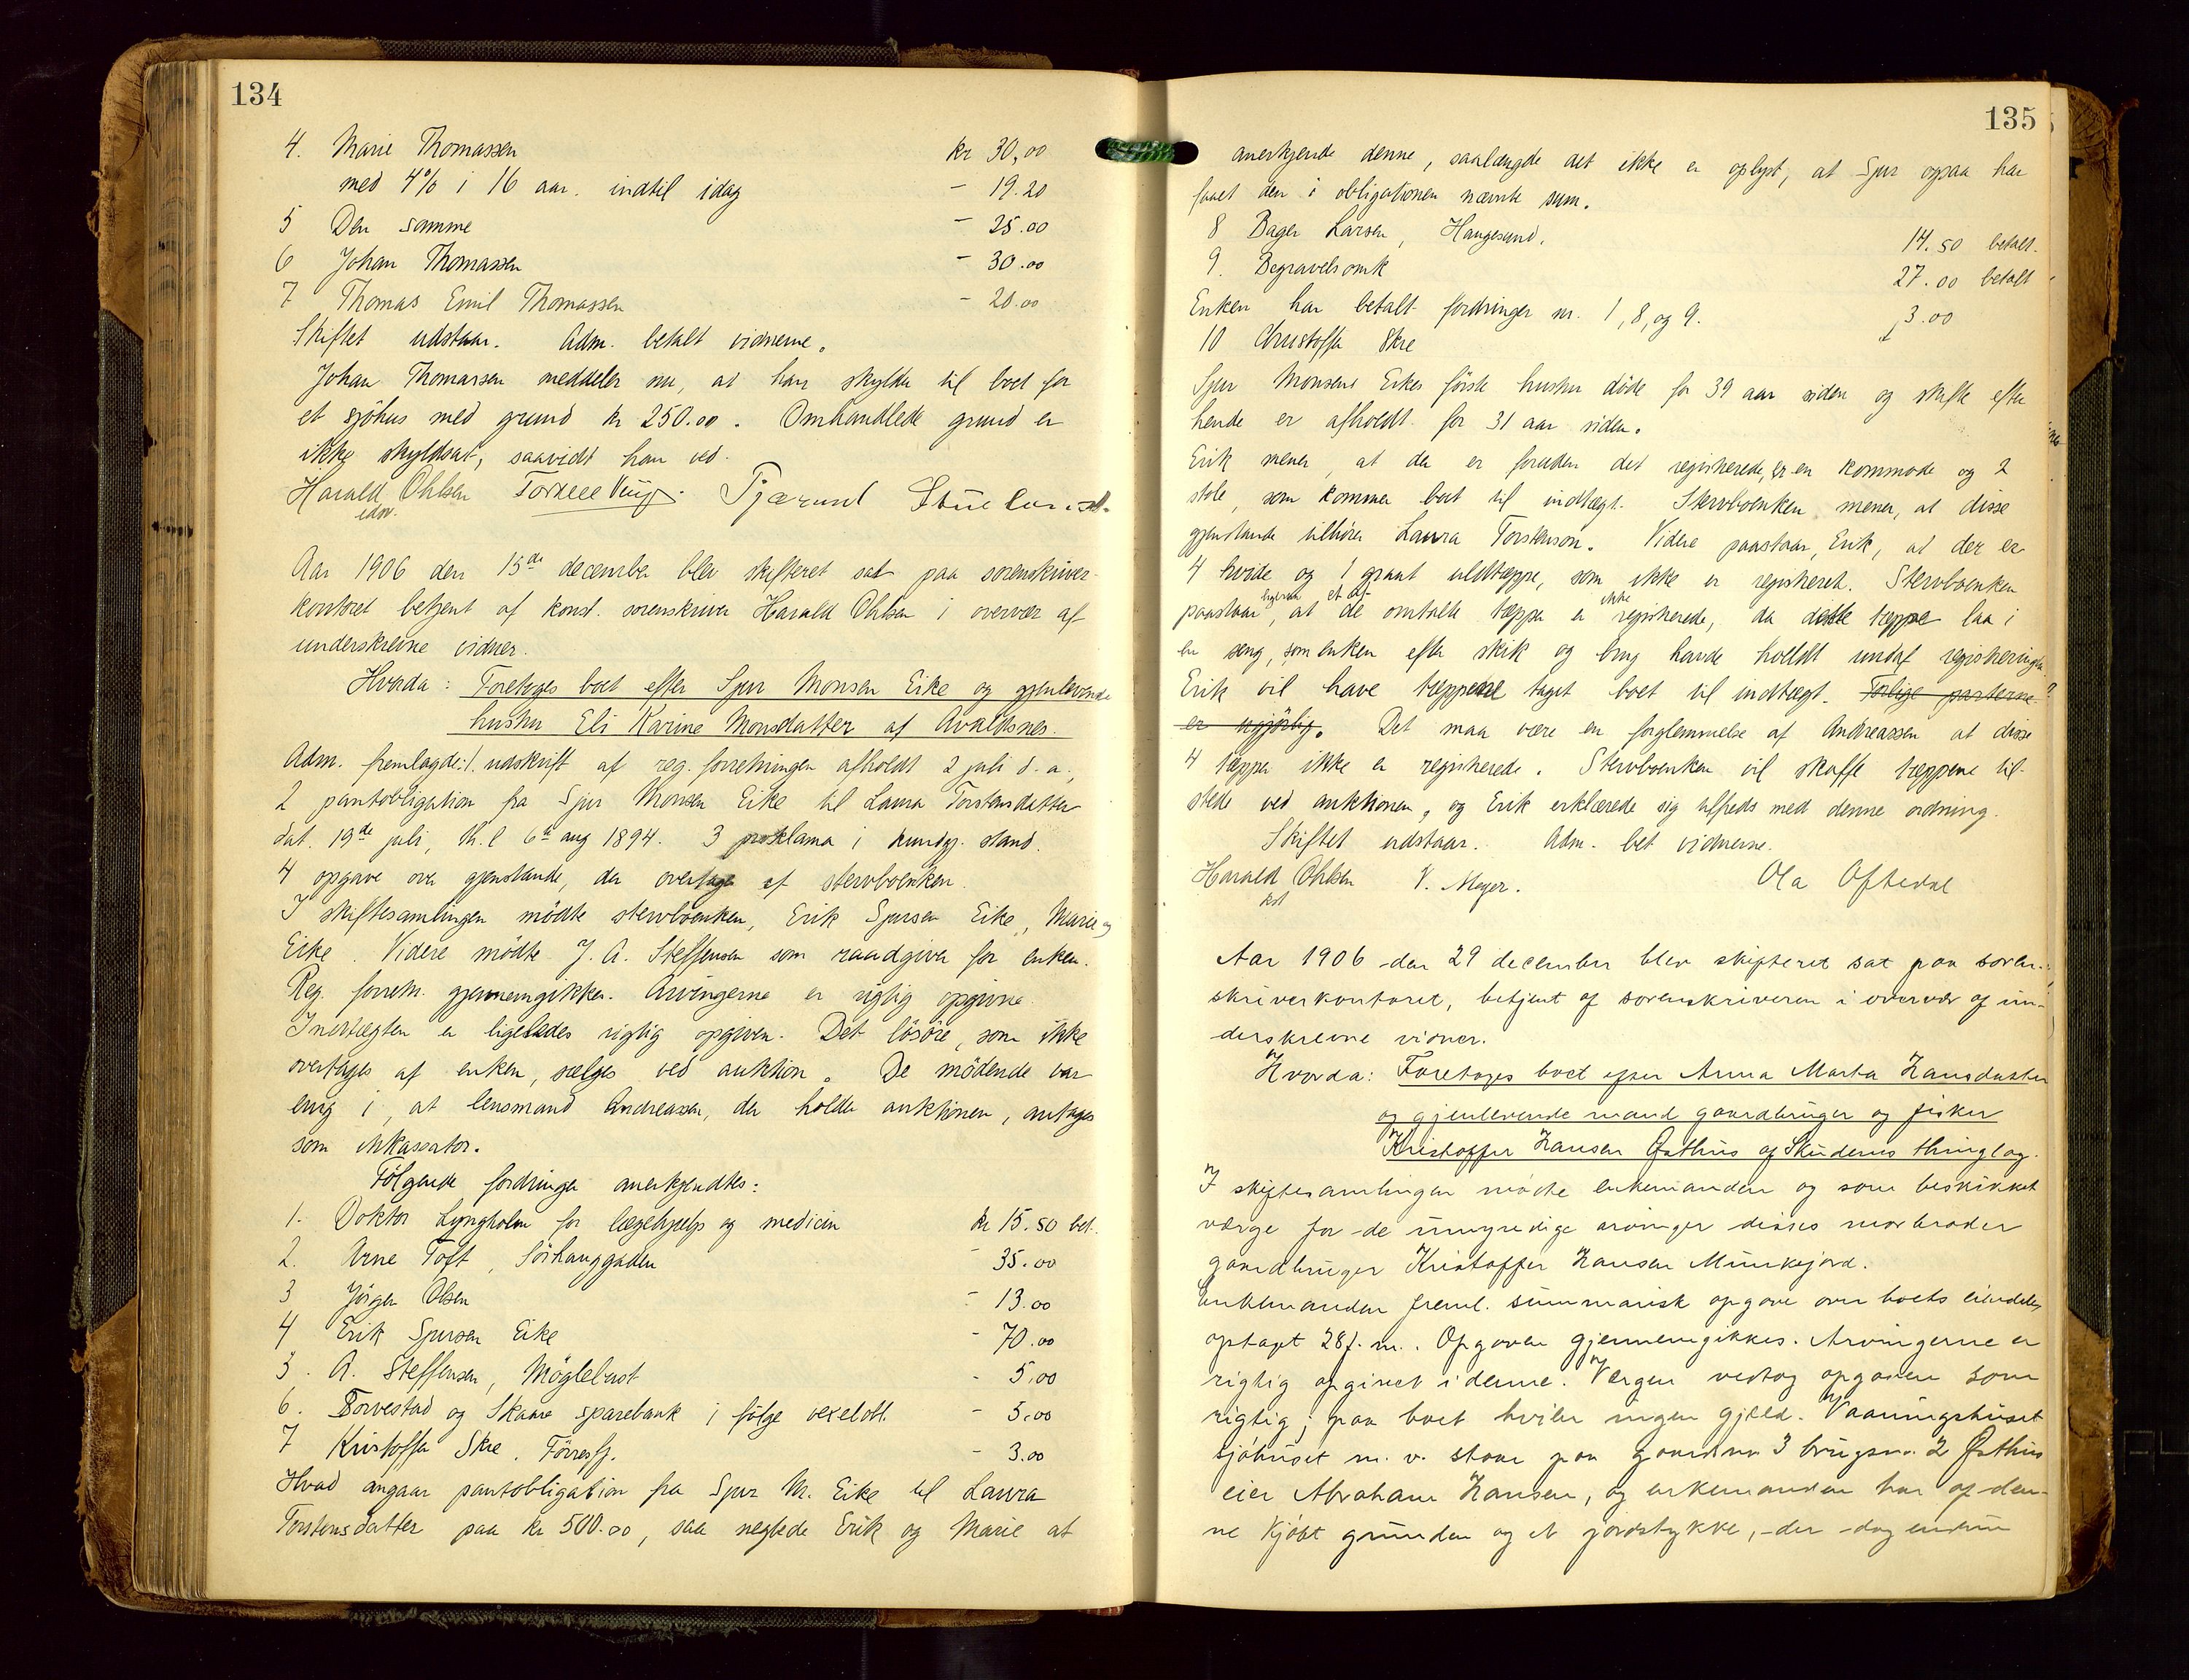 134
4. Marie Thomassen kr 30,00
med 4% i 16 aar. indtil idag - 19.20
5 Den samme - 25.00
6 Johan Thomassen - 30.00
7 Thomas Emil Thomassen - 20.00
Skiftet udstaar. Adm. betalt vidnerne.
Johan Thomassen meddeler nu, at han skylder til boet for
et sjøhus med grund kr 250.00. Omhandlede grund er
ikke skyldsat, saavidt han ved.
Harald Ohlsen
Aar 1906 den 15de december blev skifteret sat paa sorenskriver-
kontoret betjent af konst. sorenskriver Harald Ohlsen i overvær af
underskrevne vidner.
Hvorda: Foretoges boet efter Sjur Monsen Eike og gjenlevende
hustru Eli Karine Monsdatter af Avaldsnes.
Adm. fremlagde: 1. udskrift af reg. forretningen afholdt 2 juli d. a.,
2 pantobligation fra Sjur Monsen Eike til Laura Torstensdatter
dat. 19de juli, th. l. 6te aug 1894. 3 proklama i kundgj. stand.
4 opgave over gjenstande, der overtages af stervboenken.
I skiftesamlingen mödte stervboenken, Erik Sjursen Eike, Marie
Eike. Videre mödte J. A. Steffensen som raadgiver for enken.
Reg. forretn. gjennemgikkes. Arvingerne er rigtig opgivne.
Indtægten er ligeledes rigtig opgiven. Det lösöre, som ikke
overtages af enken, sælges ved auktion. De mödende var
enig i, at lensmand Andreassen, der holder auktionen, antages
som inkassator.
Fölgende fordringer anerkjendtes:
1. Doktor Lyngholm for lægehjælp og medicin kr 15.50 bet.
2. Arne Toft, Sörhauggaden - 35.00
3 Jörgen Olsen - 13.00
4 Erik Sjursen Eike - 70.00
5. A. Steffensen, Möglebust - 5.00
6. Torvestad og Skaare sparebank i fölge vexelobl. - 5.00
7 Kristoffer Skre. Förresfj. - 3.00
Hvad angaar pantobligation fra Sjur M. Eike til Laura
Torstensdatter paa kr 500.00, saa neglede Erik og Marie at
135
anerkjende denne, saalængde det ikke er oplyst, at Sjur ogsaa har
faaet den i obligationen nævnte sum.
8 Bager Larsen, Haugesund. 14.50 betalt.
9. Begravelsomk 27.00 betalt
Enken har betalt fordringer nr. 1, 8, og 9.
10 Christoffer Skre 3.00
Sjur Monsens Eikes förste hustru döde for 39 aar siden og skifte efter
hende er afholdt for 31 aar siden.
Erik mener, at der er foruden det registrerede, er en kommode og 2
stole, som kommer boet til indtægt. Stervboenken mener, at disse
gjenstande tilhörer Laura Torstenson. Videre paastaar, Erik, at der er
4 hvide og 1 graat uldtæppe, som ikke er registreret. Stervboenken
paastaar, at et af de omtalte tæpper er ikke registrerede, da dette tæppe laa i
en seng, som enken efter skik og brug havde holdt undaf registreringen.
Erik vil have tæppene taget boet til indtægt. Forlige parterne
er ugjörlig. Det maa være en forglemmelse af Andreassen at disse
4 tæpper ikke er registrerede. Stervboenken vil skaffe tæppene til-
stede ved auktionen, og Erik erklærede sig tilfreds med denne ordning.
Skiftet udstaar. Adm. bet vidnerne.
Harald Ohlsen V. Meyer. Ola Oftedal
kst
Aar 1906 den 29 december blev skifteret sat paa soren-
skriverkontoret, betjent af sorenskriveren i overvær af un-
derskrevne vidner.
Hvorda: Foretoges boet efter Anna Marta Hansdatter
og gjenlevende mand gaardbruger og fisker
Kristoffer Hansen Østhus af Skudenes thinglag.
I skiftesamlingen mødte enkemanden og som beskikket
værge for de umyndige arvinger disses morbroder
gaardbruger Kristoffer Hansen Munkejord.
Enkemanden freml. summarisk opgave over boets eiendele,
optaget 28 f. m.. Opgaven gjennemgikkes. Arvingerne er
rigtig opgivet i denne. Værgen vedtog opgaven som
rigtig; paa boet hviler ingen gjæld. Vaaningshuset
sjøhuset m. v. staar paa gaardsnr. 3 brugsnr. 2 Østhus
eier Abraham Hansen, og enkemanden har af den-
ne kjøbt grunden og et jordstykke, der dog endnu